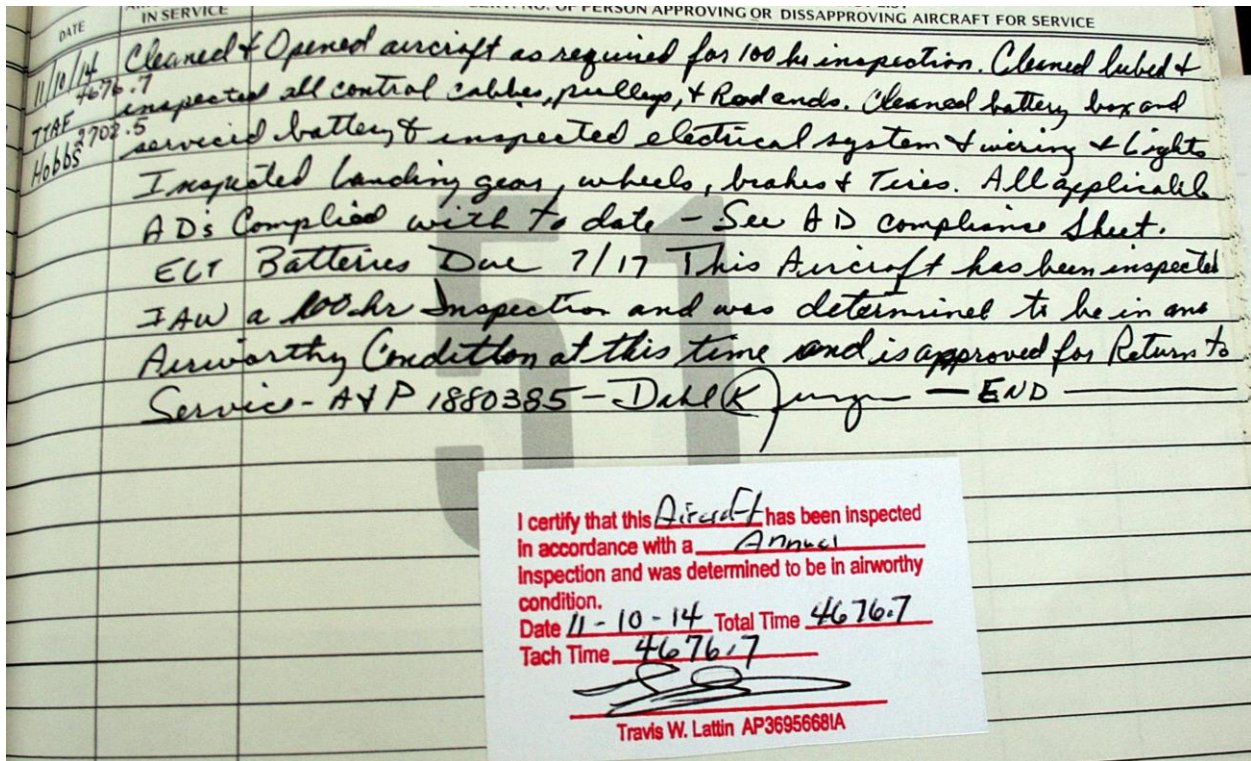 IN SERVICE
CERT. NO. OF PERSON APPROVING OR DISSAPPROVING AIRCRAFT FOR SERVICE
DATE
11/10/14 Cleaned & Opened aircraft as required for 100 hr inspection. Cleaned lubed &
4676.7 inspected all control cabbes, pulleys, & Rod ends. Cleaned battery box and
TTAF 2702.5 serviced battery & inspected electrical system & wiring & Lights
Hobbs
Inspected Landing gear, wheels, brakes & Tires. All applicable
AD's Complied with to date - See AD compliance Sheet.
ELT Batteries Due 7/17 This Aircraft has been inspected
IAW a 100 hr Inspection and was determined to be in an
Airworthy Condition at this time and is approved for Return to
Service - A&P 1880385 - Dahl K — END —
51
I certify that this Aircraft has been inspected
in accordance with a Annual
inspection and was determined to be in airworthy
condition.
Date 11-10-14 Total Time 4676.7
Tach Time 4676.7
Travis W. Lattin AP3695668IA